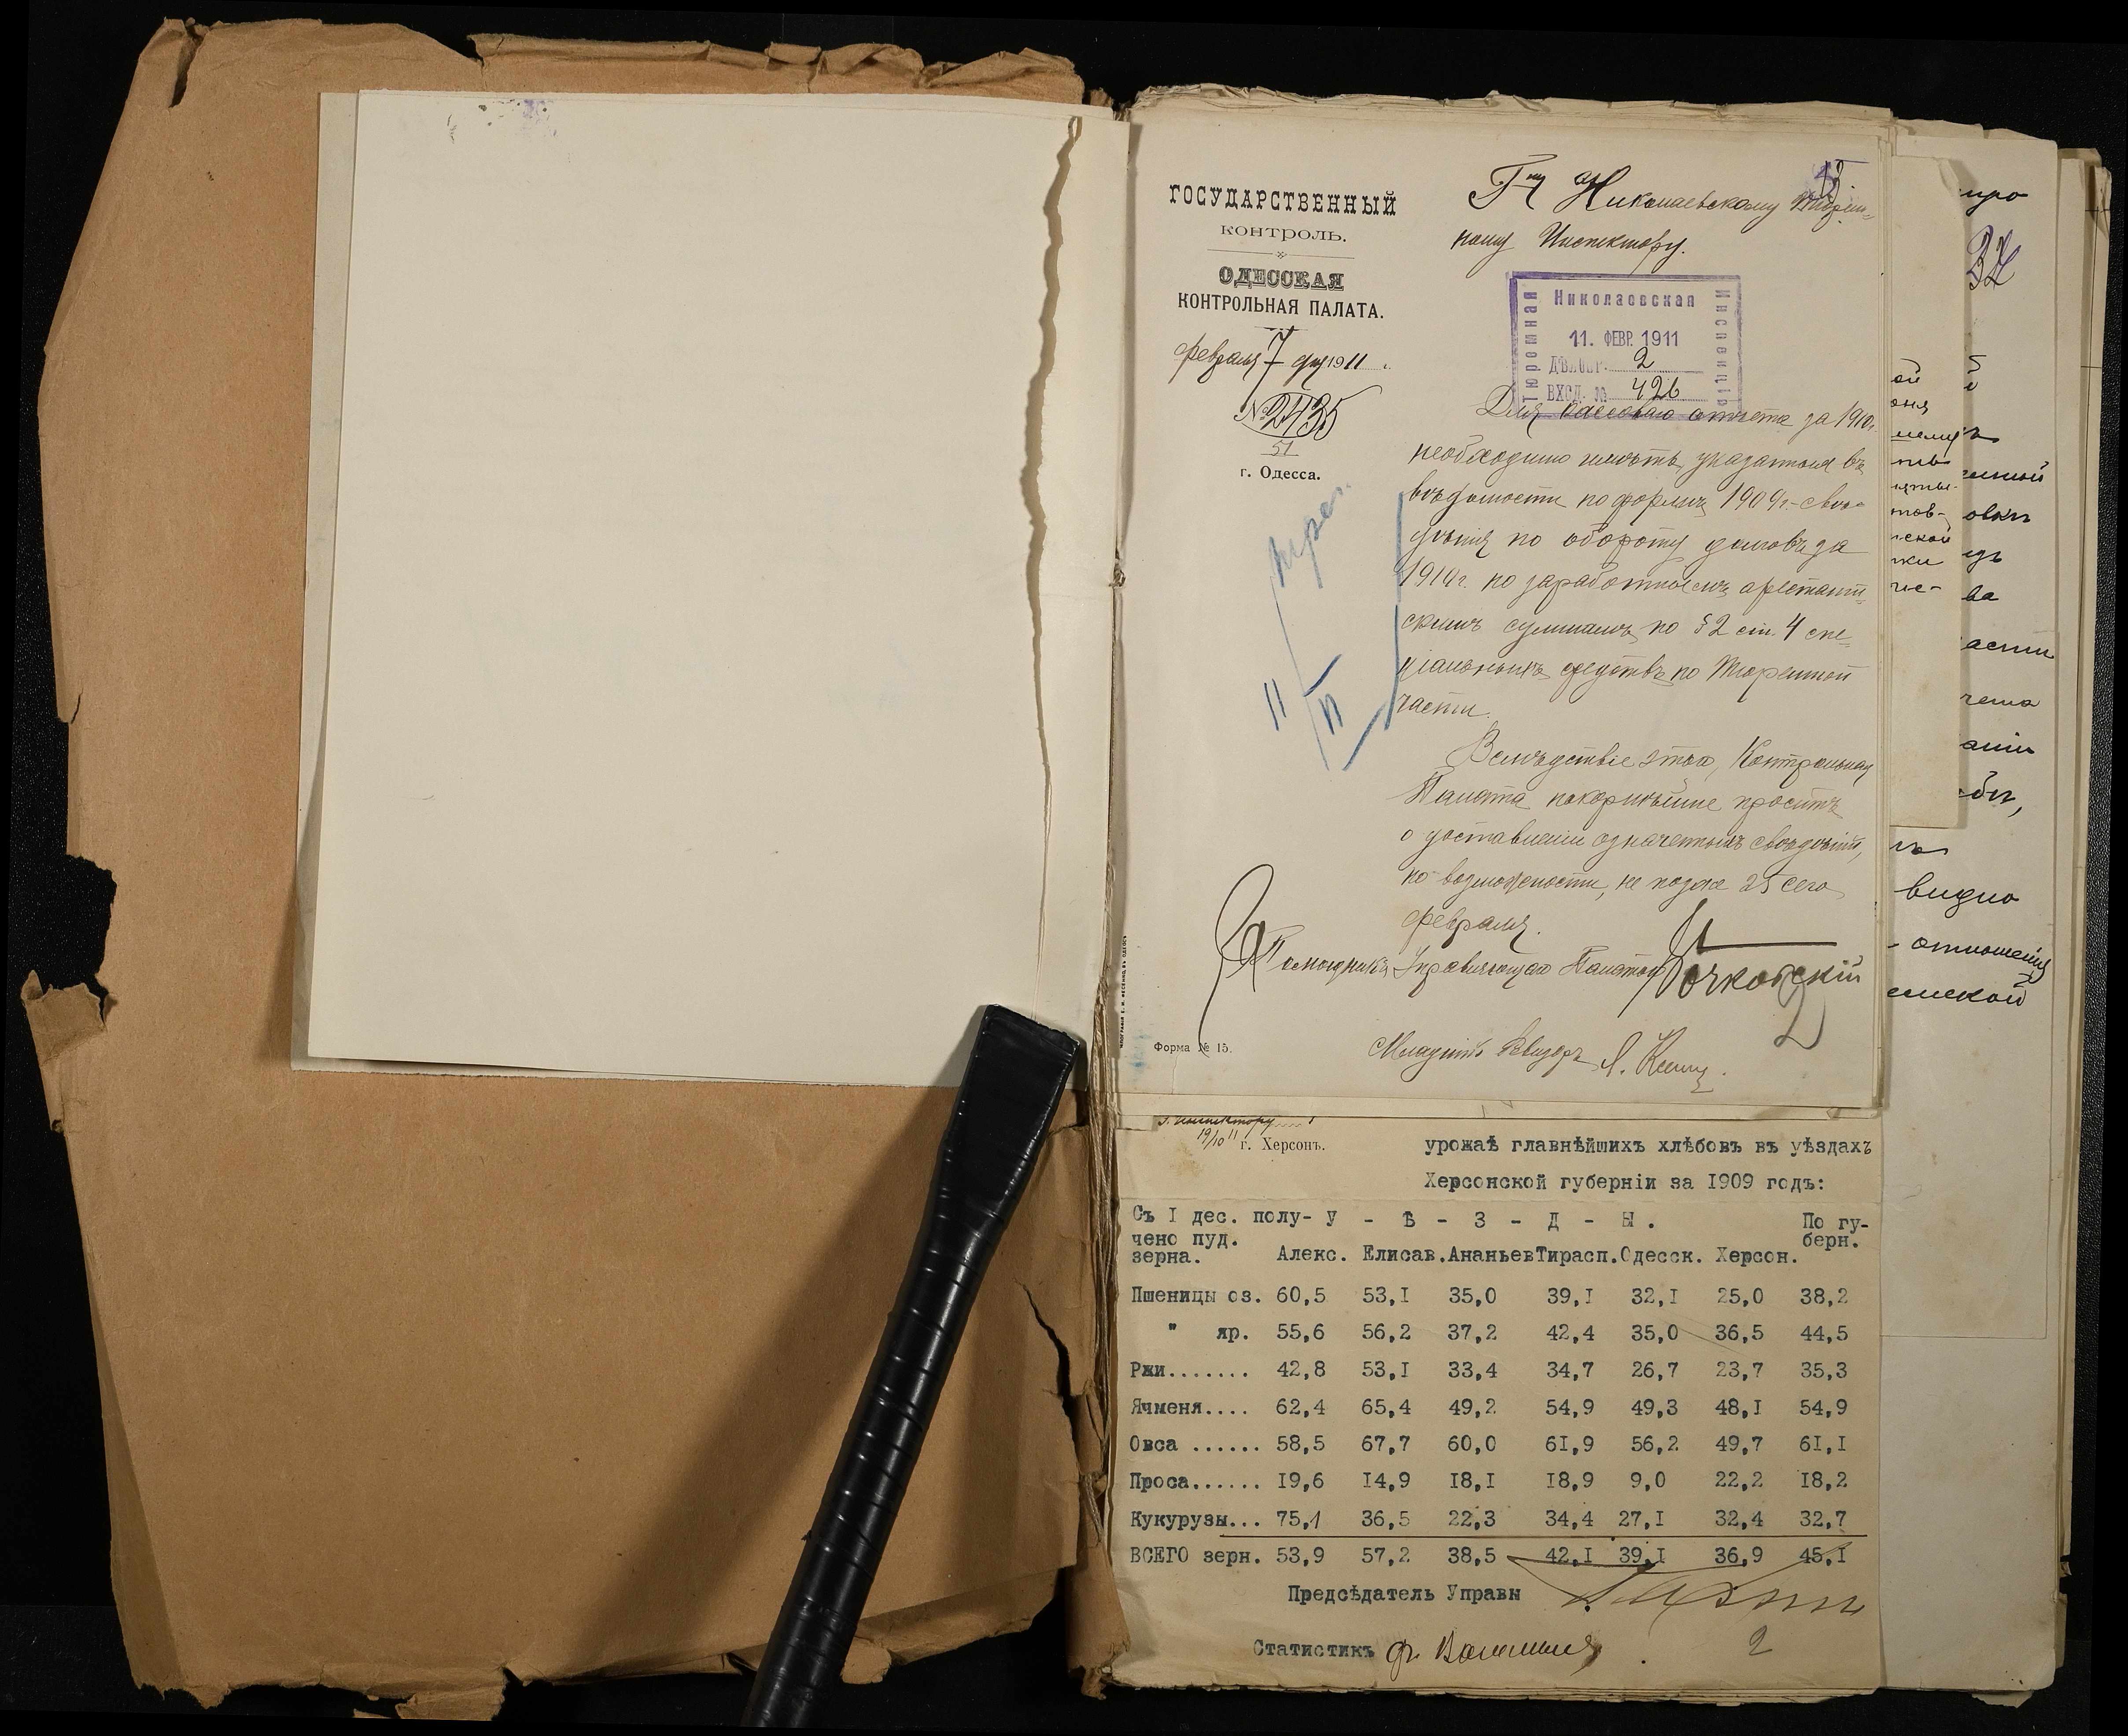 ГОСУДАРСТВЕННЫЙ
КОНТРОЛЬ.
ОДЕССКАЯ
КОНТРОЛЬНАЯ ПАЛАТА.
Февраля 7 дня 1911 .
№ 2435
51
г. Одесса.
Г-ну Николаевскому Тюрем-
ному Инспектору.
Николаевская
Тюремная
Инспекція
11. ФЕВР. 1911
2
ВХОД. № 426
Для кассоваго отчета за 1910 г.
необходимо имѣть, указанныя въ
вѣдомости по формѣ 1909 г. свѣ-
дѣнія по обороту долговъ за
1910 г. по заработнымъ арестант-
скимъ суммамъ по § 2 ст. 4 спе-
ціальныхъ средствъ по Тюремной
части.
Вслѣдствіе этого, Контрольная
Палата покорнѣйше проситъ
о доставленіи означенныхъ свѣдѣній,
по возможности, не позже 25 сего
февраля.
За Помощника Управляющаго Палатою
Младшій Ревизоръ
Форма № 15.
2
г. Инспектору
19/10 11
г. Херсонъ.
урожаѣ главнѣйшихъ хлѣбовъ въ уѣздахъ
Херсонской губерніи за 1909 годъ:
Съ I дес. полу- У - Ѣ - З - Д - Ы . По гу-
чено пуд. берн.
зерна. Алекс. Елисав. Ананьев Тирасп. Одесск. Херсон.
Пшеницы оз. 60,5 53,I 35,0 39,I 32,I 25,0 38,2
" яр. 55,6 56,2 37,2 42,4 35,0 36,5 44,5
Ржи....... 42,8 53,I 33,4 34,7 26,7 23,7 35,3
Ячменя.... 62,4 65,4 49,2 54,9 49,3 48,I 54,9
Овса ...... 58,5 67,7 60,0 6I,9 56,2 49,7 6I,I
Проса...... I9,6 I4,9 I8,I I8,9 9,0 22,2 I8,2
Кукурузы... 75,1 36,5 22,3 34,4 27,I 32,4 32,7
ВСЕГО зерн. 53,9 57,2 38,5 42,I 39,I 36,9 45,I
Предсѣдатель Управы
Статистикъ
2
32
видно
отношенія